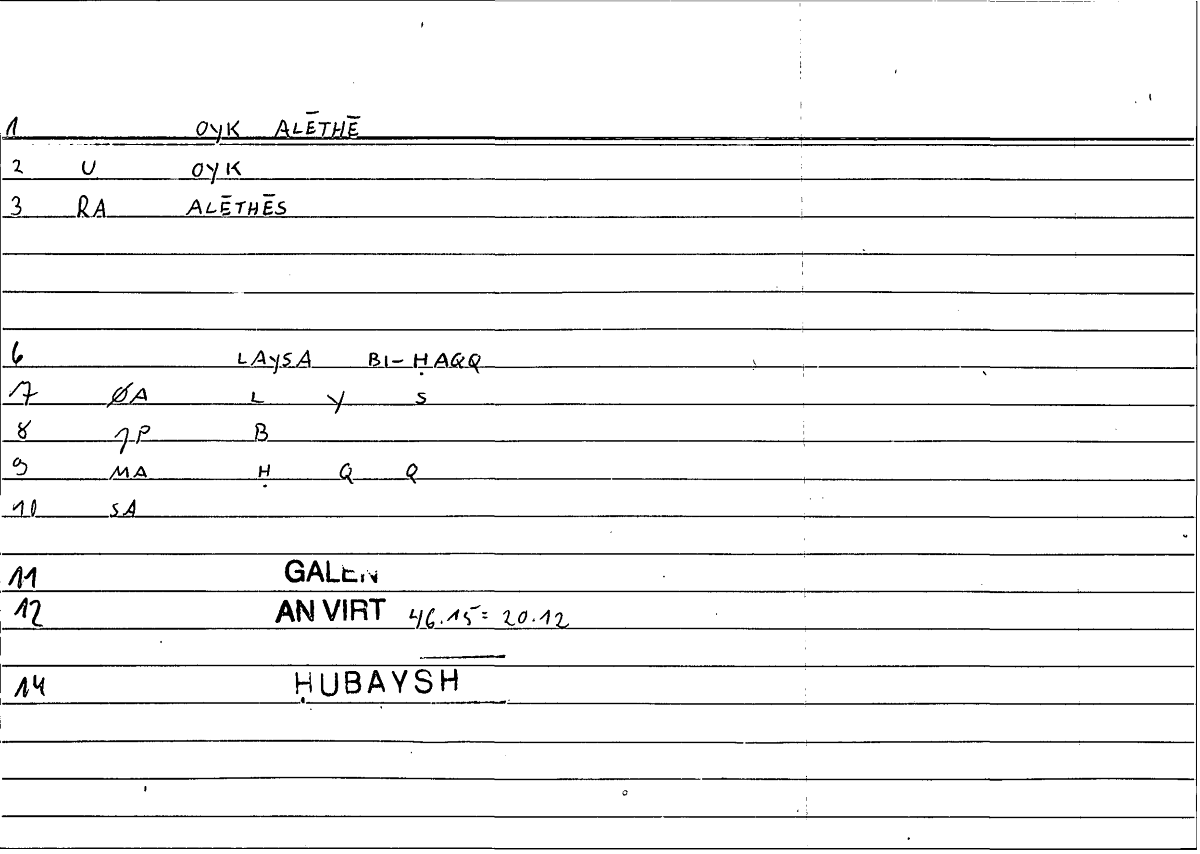 1 OYK ALĒTHĒ
2 U OYK
3 RA ALĒTHĒS
6 LAYSA BI-ḤAQQ
7 ØA L Y S
8 P B
9 MA Ḥ Q Q
10 SA
11 GALEN
12 AN VIRT 46.15 = 20.12
14 ḤUBAYSH